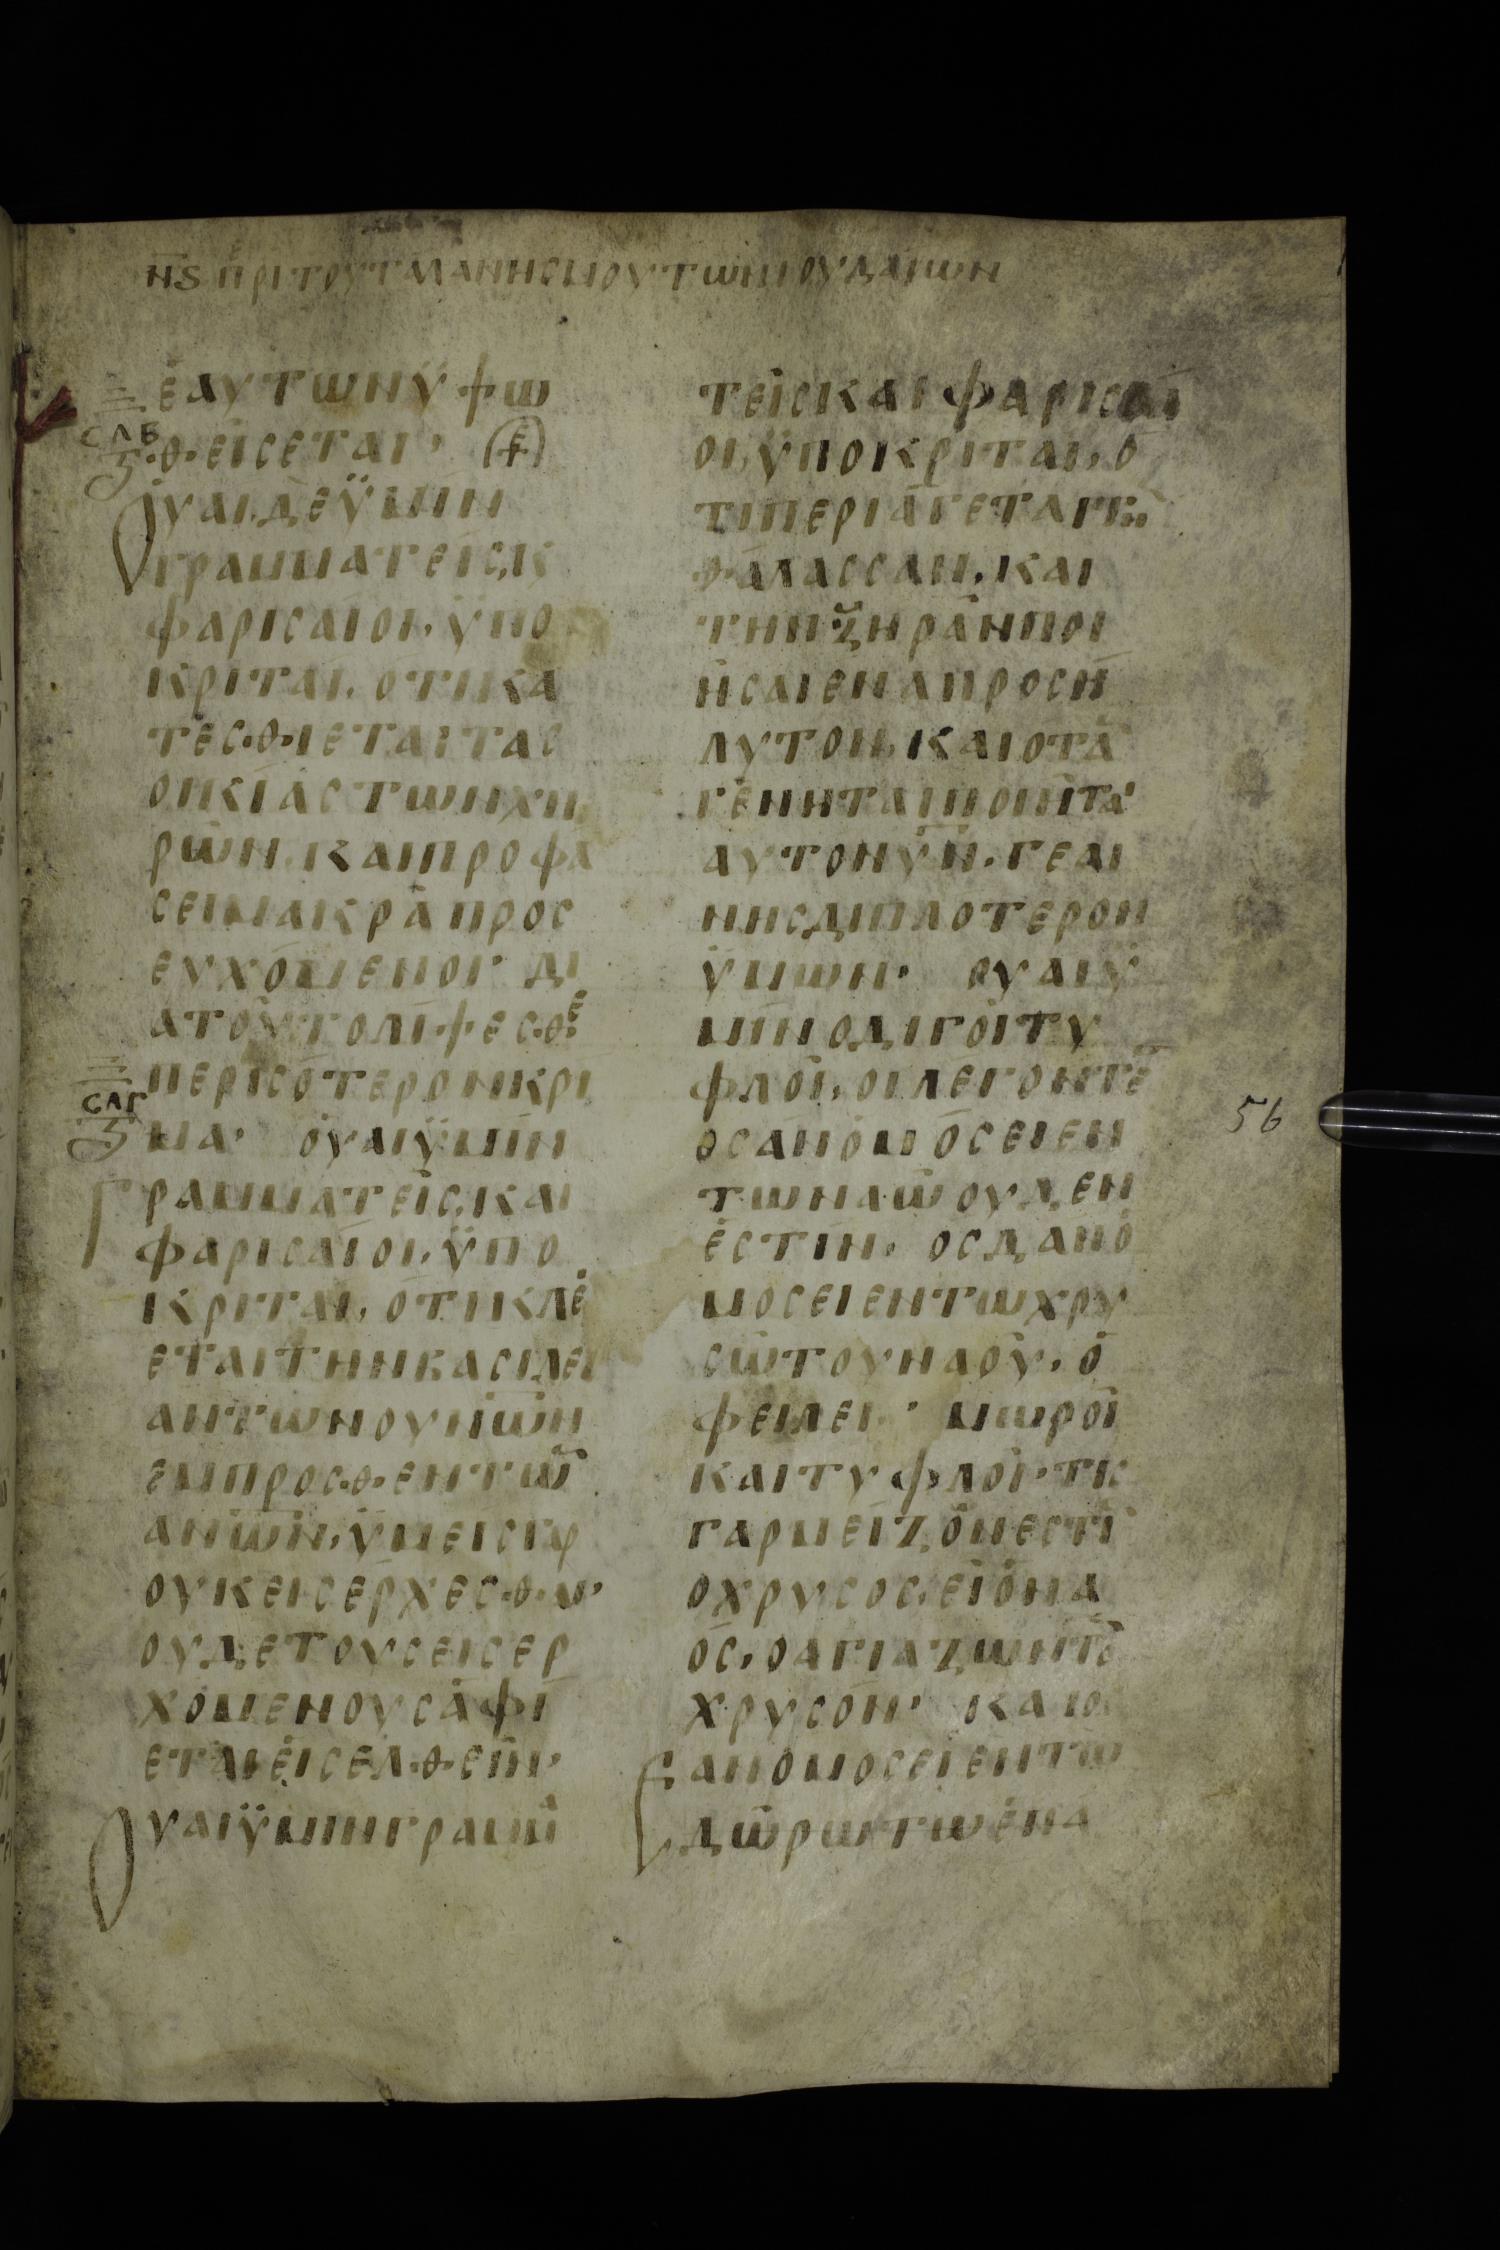 ΝϚ ΠΡΙ ΤΟΥ ΤΑΛΑΝΗСΜΟΥ ΤѠΝ ΙΟΥΔΑΙѠΝ
ἑΑΥΤѠΝΫΨѠ
СΛΒ
ΘΕΙСΕΤΑΙ·
ΟΥΑΙΔΕΫΜΙΝ
ΓΡΑΜΜΑΤΕΙС,Κ
ΦΑΡΙСΑΙΟΙ,ΫΠΟ
ΚΡΙΤΑΙ,ΟΤΙΚΑ
ΤΕСΘΙΕΤΑΙΤΑС
ΟΙΚΙΑСΤѠΝΧΗ
ΡѠΝ,ΚΑΙΠΡΟΦΑ
СΕΙΜΑΚΡΑΠΡΟС
ΕΥΧΟΜΕΝΟΙ· ΔΙ
ΑΤΟΥΤΟΛΙΨΕСΘΕ
ΠΕΡΙСΟΤΕΡΟΝΚΡΙ
СΛΓ
ΜΑ· ΟΥΑΙΫΜΙΝ
ΓΡΑΜΜΑΤΕΙС,ΚΑΙ
ΦΑΡΙСΑΙΟΙ,ΫΠΟ
ΚΡΙΤΑΙ,ΟΤΙΚΛΕ
ΕΤΑΙΤΗΝΒΑСΙΛΕΙ
ΑΝΤѠΝΟΥΝѠΝ
ΕΜΠΡΟСΘΕΝΤѠ
ΑΝѠΝ,ΫΜΕΙСΓΡ
ΟΥΚΕΙСΕΡΧΕСΘΑΙ,
ΟΥΔΕΤΟΥСΕΙСΕΡ
ΧΟΜΕΝΟΥСΑΦΙ
ΕΤΑΙΕΙСΕΛΘΕΙΝ·
ΟΥΑΙΫΜΙΝΓΡΑΜΜ
ΤΕΙСΚΑΙΦΑΡΙСΑΙ
ΟΙ,ΫΠΟΚΡΙΤΑΙ,Ο
ΤΙΠΕΡΙΑΓΕΤΑΙΤΗ
ΘΑΛΑССΑΝ,ΚΑΙ
ΤΗΝΞΗΡΑΝΠΟΙ
ΗСΑΙΕΝΑΠΡΟСΗ
ΛΥΤΟΝ,ΚΑΙΟΤΑ
ΓΕΝΗΤΑΙΠΟΙΗΤΑΙ
ΑΥΤΟΝΥΝ·ΓΕΑΙ
ΝΗСΔΙΠΛΟΤΕΡΟΝ
ΫΜѠΝ· ΟΥΑΙΫ
ΜΙΝΟΔΙΓΟΙΤΥ
ΦΛΟΙ,ΟΙΛΕΓΟΝΤΕ
ΟСΑΝΟΜΟСΕΙΕΝ
ΤѠΝΑѠΟΥΔΕΝ
ΕСΤΙΝ, ΟСΔΑΝΟ
ΜΟСΕΙΕΝΤѠΧΡΥ
СѠΤΟΥΝΑΟΥ,Ο
ΦΕΙΛΕΙ· ΜѠΡΟΙ
ΚΑΙΤΥΦΛΟΙ·ΤΙС
ΓΑΡΜΕΙΖΟΝΕСΤΙ
ΟΧΡΥСΟС,ΕΙΟΝΑ
ΟС,ΟΑΓΙΑΖѠΝΤΟ
ΧΡΥСΟΝ· ΚΑΙΟС
ΕΑΝΟΜΟСΕΙΕΝΤѠ
ΔѠΡѠΤѠΕΠΑ
56